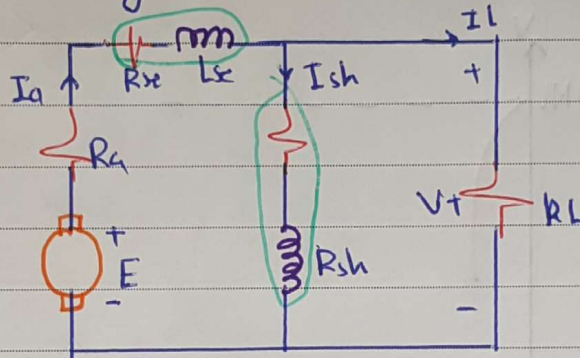 Il
Rse Lse
+
Ia
Ish
Ra
Vt
RL
+
E
Rsh
-
-